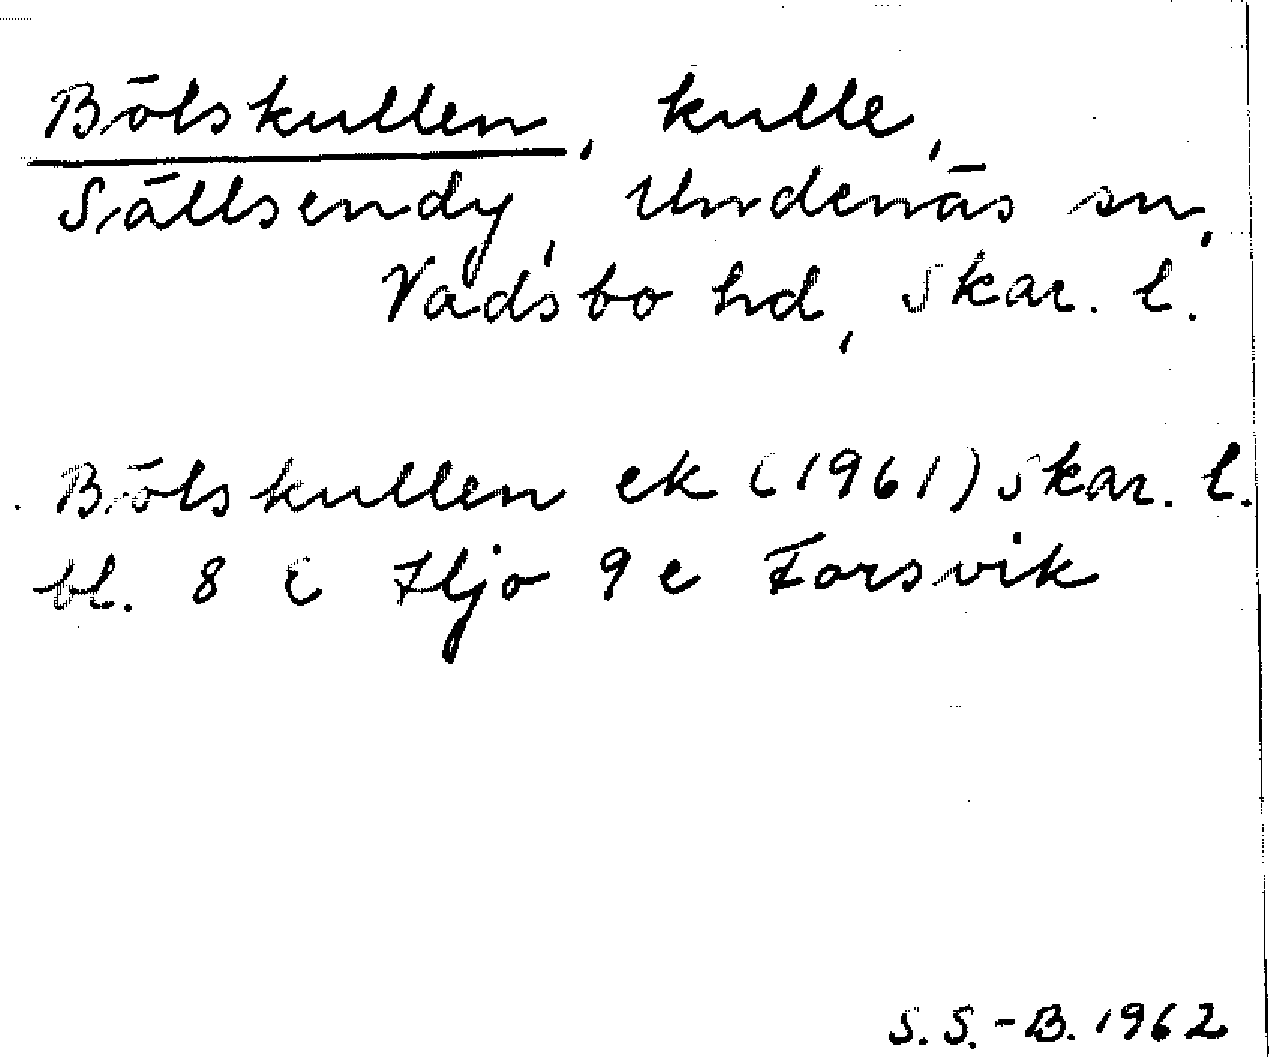 Bölskullen, kulle,
Sällsendy, Undenäs sn,
Vadsbo hd, Skar. l.
Bölskullen ek (1961) Skar. l.
bl. 8 e Hjo 9 e Forsvik
S. S.-B. 1962